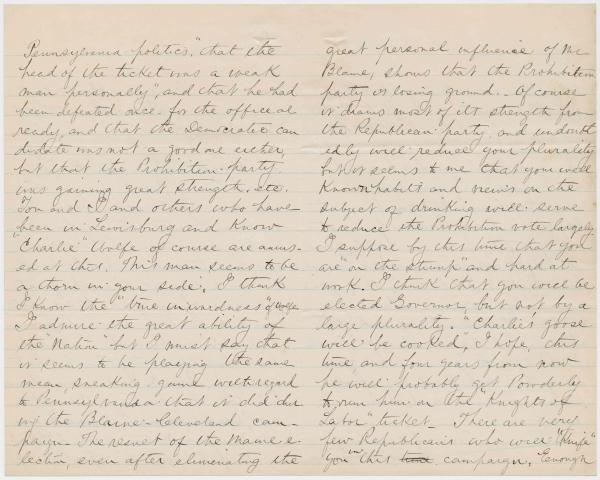 Pennsylvania politics," that the
head of the ticket was a weak
man personally", and that he had
been defeated once for the office al
ready, and that the Democratic can
didate was not a good one either,
but that the Prohibition party
was gaining great strength. etc.
You and I and others who have
been in Lewisburg and know
Charlie Wolfe of course are amus-
ed at this. This man seems to be
a thorn in your side. I think
I know the "true inwardness" of Wolfe
I admire the great ability of
the "Nation" but I must say that
it seems to be playing the same
mean, sneaking game with regard
to Pennsylvania that it did dur
ing the Blaine-Cleveland cam-
paign. The result of the Maine e-
lection, even after eliminating the
great personal influence of Mr
Blaine, shows that the Prohibition
party is losing ground. Of course
it draws most of its strength from
the Republican party, and undoubt
edly will reduce your plurality
but it seems to me that your well
known habits and views on the
subject of drinking will serve
to reduce the Prohibition vote largely
I suppose by this time that you
are "on the stump" and hard at
work. I think that you will be
elected Governor, but not by a
large plurality. "Charlie's goose
will be cooked, I hope, this
time, and four years from now
he will probably get Powderly
to run him on the "Knights of
Labor" ticket. There are very
few Republicans who will "knife"
you in this campaign. Enough